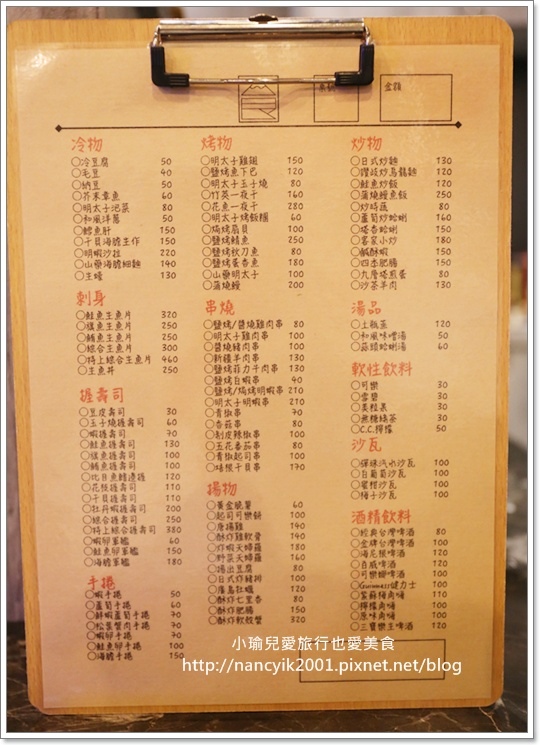 桌號
金額
冷物
○冷豆腐 50
○毛豆 40
○納豆 50
○芥末章魚 60
○明太子沙菜 80
○和風洋蔥 50
○鱈魚肝 150
○干貝海膽玉作 150
○明蝦沙拉 220
○山藥海膽細麵 140
○玉蟳 130
刺身
○鮭魚生魚片 320
○旗魚生魚片 250
○鮪魚生魚片 250
○綜合生魚片 300
○特上綜合生魚片 460
○生魚丼 250
握壽司
○豆皮壽司 30
○玉子燒壽司 60
○蝦握壽司 70
○鮭魚握壽司 130
○旗魚握壽司 100
○鮪魚握壽司 100
○比目魚鰭邊握 120
○花枝握壽司 110
○干貝握壽司 110
○牡丹蝦握壽司 200
○綜合握壽司 250
○特上綜合握壽司 380
○蝦卵軍艦 60
○鮭魚卵軍艦 150
○海膽軍艦 180
手捲
○蝦手捲 50
○蘆筍手捲 60
○鮮蝦蘆筍手捲 70
○松葉蟹肉手捲 70
○蝦卵手捲 60
○鮭魚卵手捲 100
○海膽手捲 150
烤物
○明太子雞翅 150
○鹽烤魚下巴 120
○明太子玉子燒 80
○竹莢一夜干 160
○花魚一夜干 280
○明太子烤飯糰 60
○焗烤扇貝 100
○鹽烤鯖魚 250
○鹽烤秋刀魚 80
○鹽烤喜相魚 160
○山藥明太子 100
○蒲燒鰻 200
串燒
○鹽烤/醬燒雞肉串 80
○明太子雞肉串 100
○醬燒豬肉串 100
○新疆羊肉串 130
○鹽烤菲力牛肉串 130
○鹽烤白蝦串 40
○鹽烤/焗烤明蝦串 210
○明太子明蝦串 210
○青椒串 70
○香菇串 80
○剝皮辣椒串 100
○玉花番茄串 80
○青椒起司串 100
○培根干貝串 170
揚物
○黃金脆薯 60
○起司可樂餅 100
○唐揚雞 140
○酥炸雞軟骨 140
○炸蝦天婦羅 180
○野菜天婦羅 160
○揚出豆腐 80
○日式炸豬排 100
○廣島牡蠣 120
○酥炸七里香 80
○酥炸肥腸 150
○酥炸軟殼蟹 320
炒物
○日式炒麵 130
○讚岐炒烏龍麵 120
○鮭魚炒飯 120
○蒲燒鰻魚飯 250
○炒時蔬 80
○蘆筍炒蛤蜊 160
○塔香蛤蜊 150
○客家小炒 180
○鹹酥蝦 150
○四季肥腸 150
○九層塔煎蛋 80
○沙茶羊肉 130
湯品
○土瓶蒸 120
○和風味噌湯 50
○蒜頭蛤蜊湯 60
軟性飲料
○可樂 30
○雪碧 30
○美粒果 30
○無糖綠茶 30
○C.C.檸檬 50
沙瓦
○彈珠汽水沙瓦 100
○白葡萄沙瓦 100
○蜜柑沙瓦 100
○梅子沙瓦 100
酒精飲料
○經典台灣啤酒 80
○金牌台灣啤酒 100
○海尼根啤酒 120
○百威啤酒 120
○可樂娜啤酒 100
○Guinness健力士 100
○紫蘇梅嗨 100
○檸檬嗨 100
○原味嗨 100
○三寶樂生啤酒 120
小瑜兒愛旅行也愛美食
http://nancyik2001.pixnet.net/blog